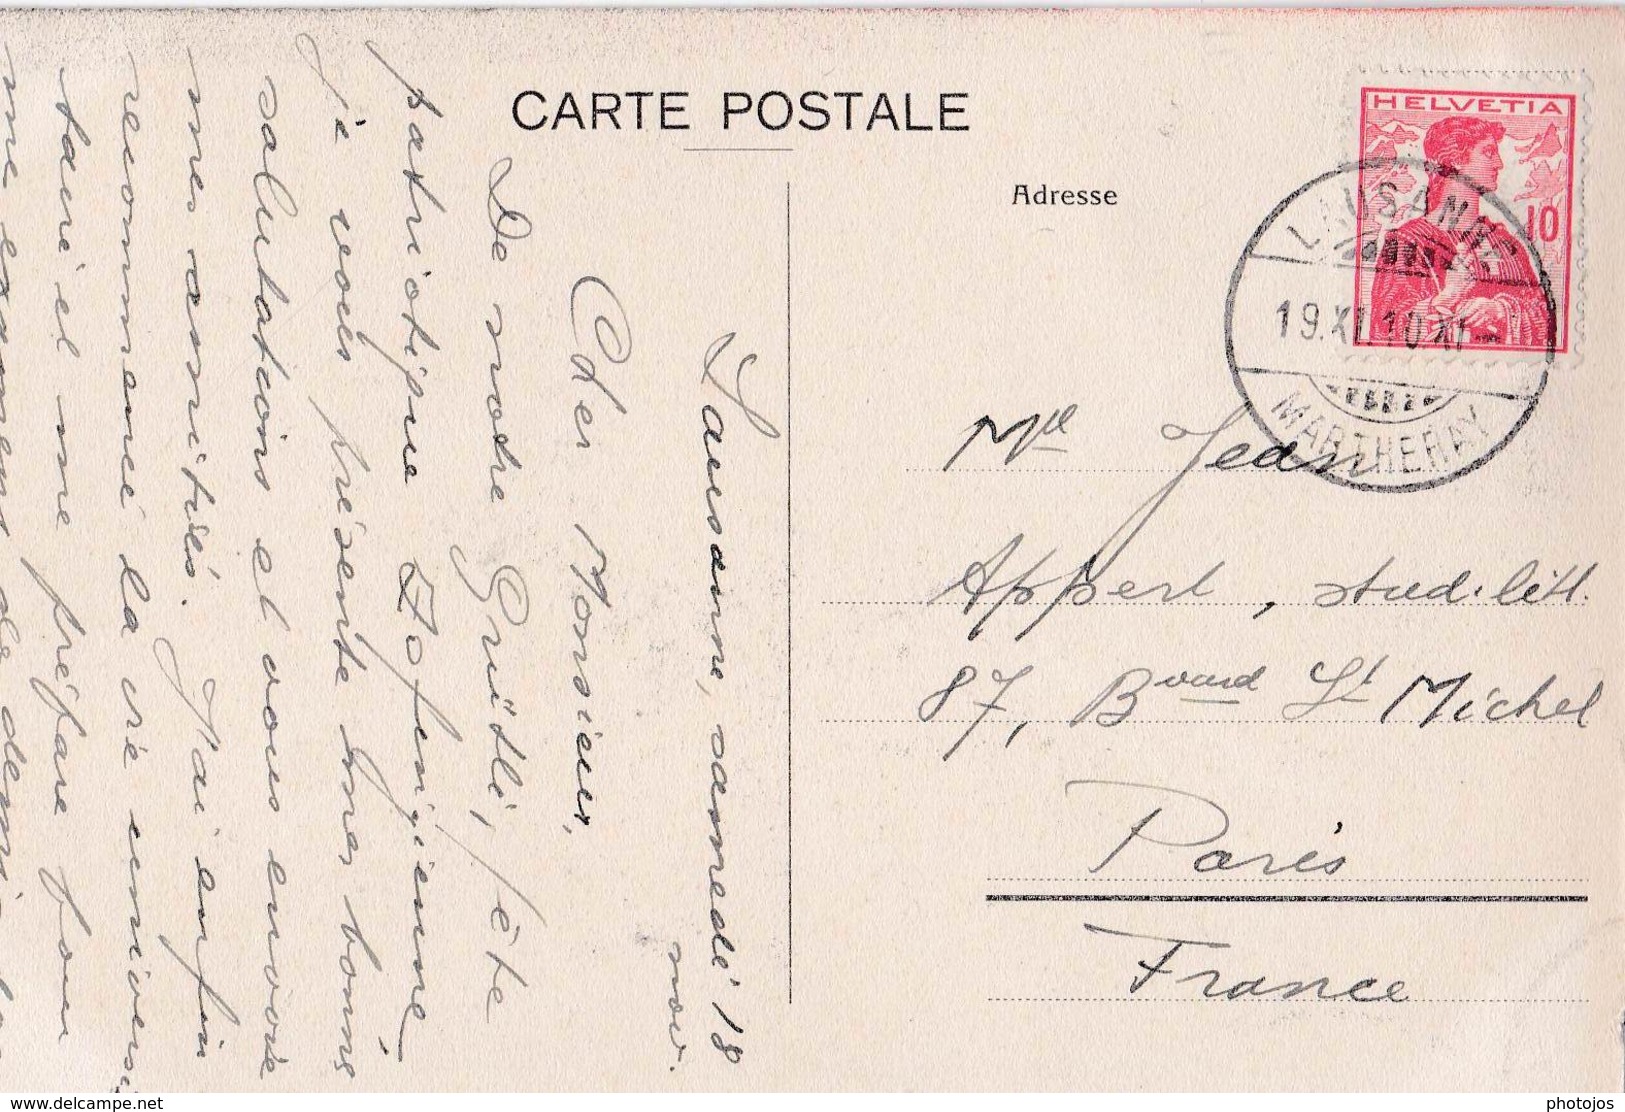 CARTE POSTALE
Adresse
HELVETIA
10
LAUSANNE
19.XI.10.XI
MARTHERAY
Mr Jean
Appert, stud. litt.
87, Bvard St Michel
Paris
France
Lausanne, samedi 18
nov.
Cher Monsieur,
De notre Grütli, fête
patriotique Zofingienne
je vous présente mes bonnes
salutations et vous envoie
mes amitiés. J'ai enfin
recommencé la vie univers.
taire et me prépare pour
mes examens de
www.delcampe.net
photojos